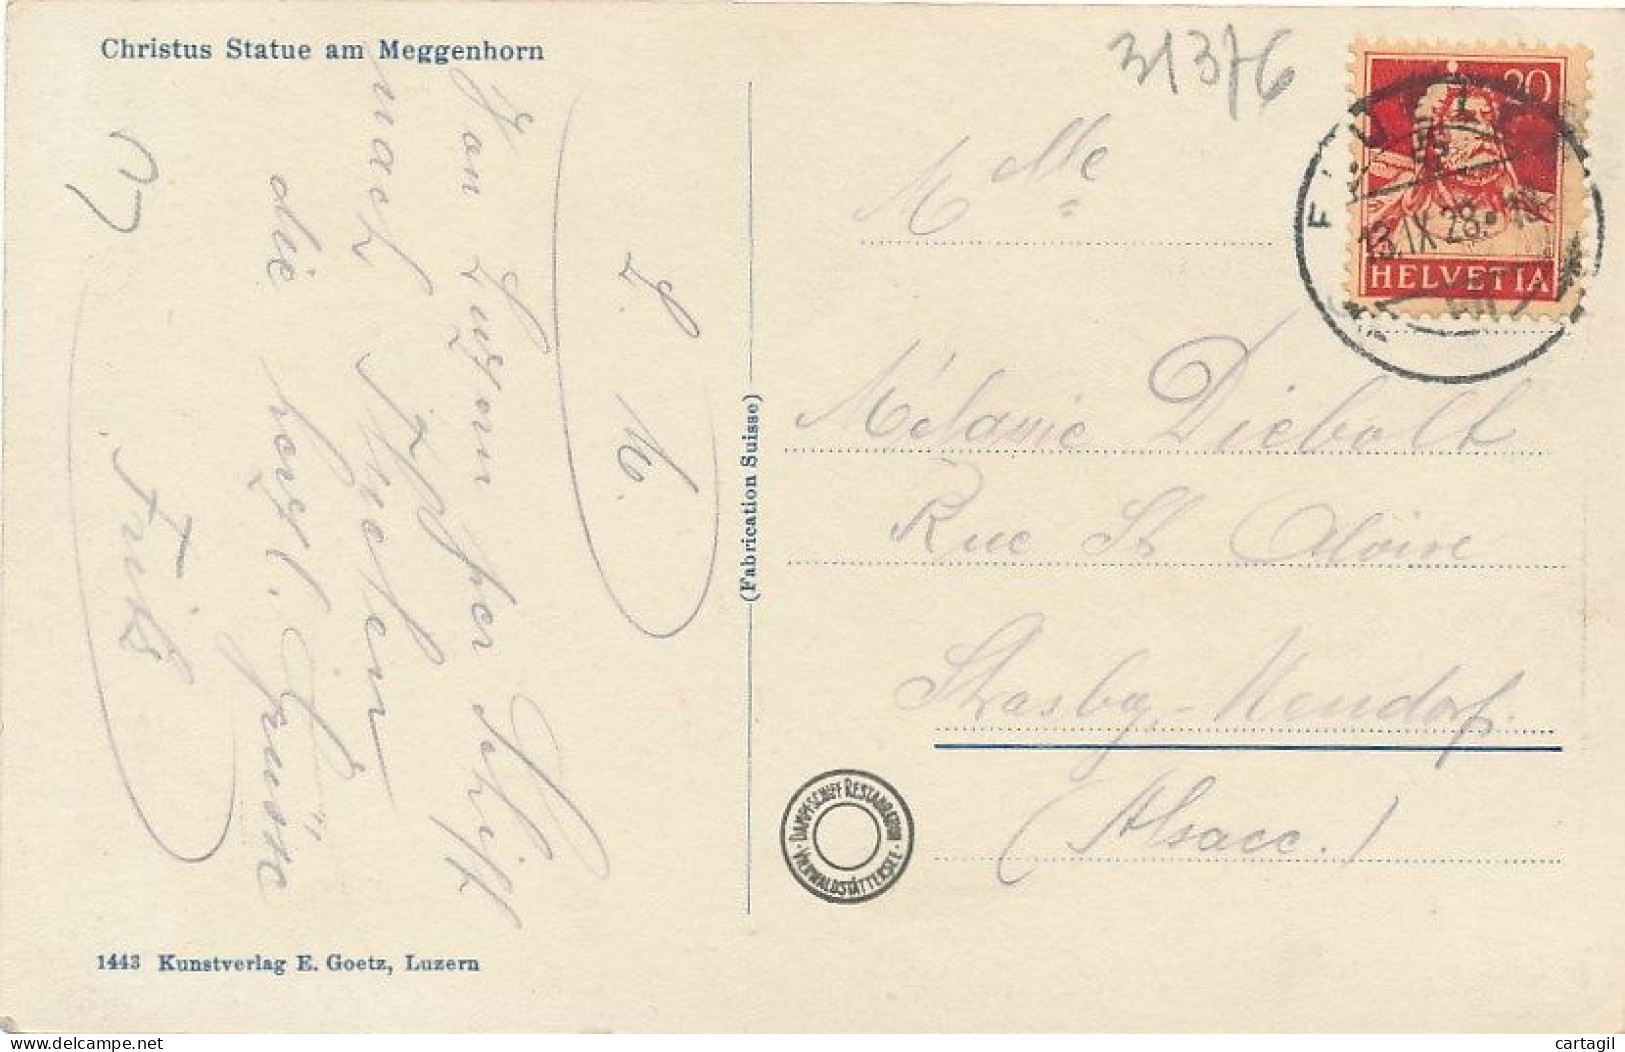 Christus Statue am Meggenhorn
31376
Mlle
Mélanie Diebolt
Rue St
Strasbg.-Neudorf.
(Alsace.)
L. M.
Von Luzern per Schiff
nach Flüelen
die herzl. Grüsse
Fritz
(Fabrication Suisse)
20
HELVETIA
13.IX 28.
DAMPFSCHIFF RESTAURATION
VIERWALDSTÄTTERSEE
1443 Kunstverlag E. Goetz, Luzern
cartagil